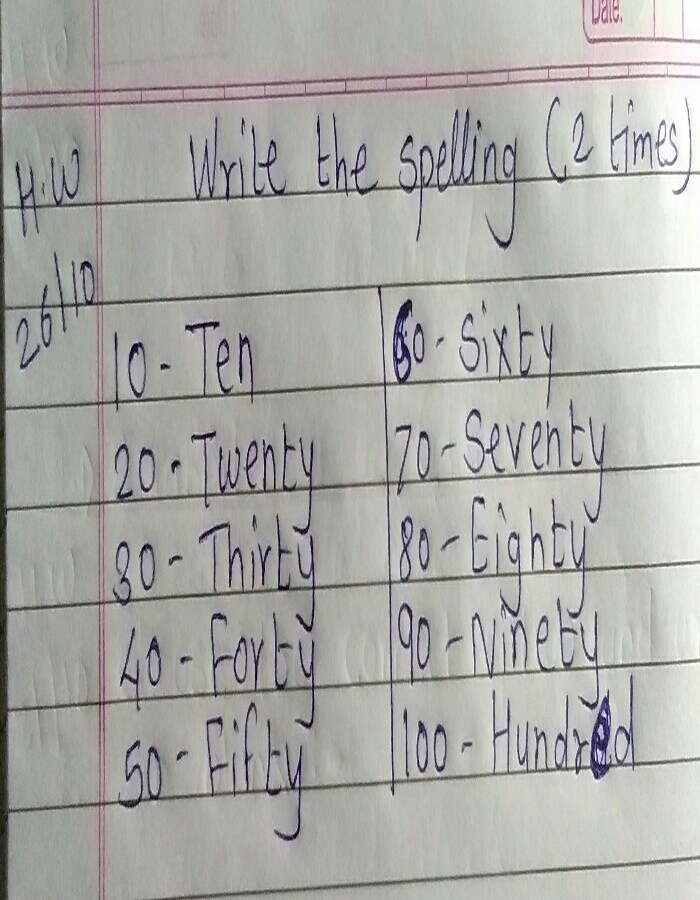 Date.
H.W Write the spelling (2 times)
26/10
10 - Ten
20 - Twenty
30 - Thirty
40 - Forty
50 - Fifty
60 - Sixty
70 - Seventy
80 - Eighty
90 - Ninety
100 - Hundred